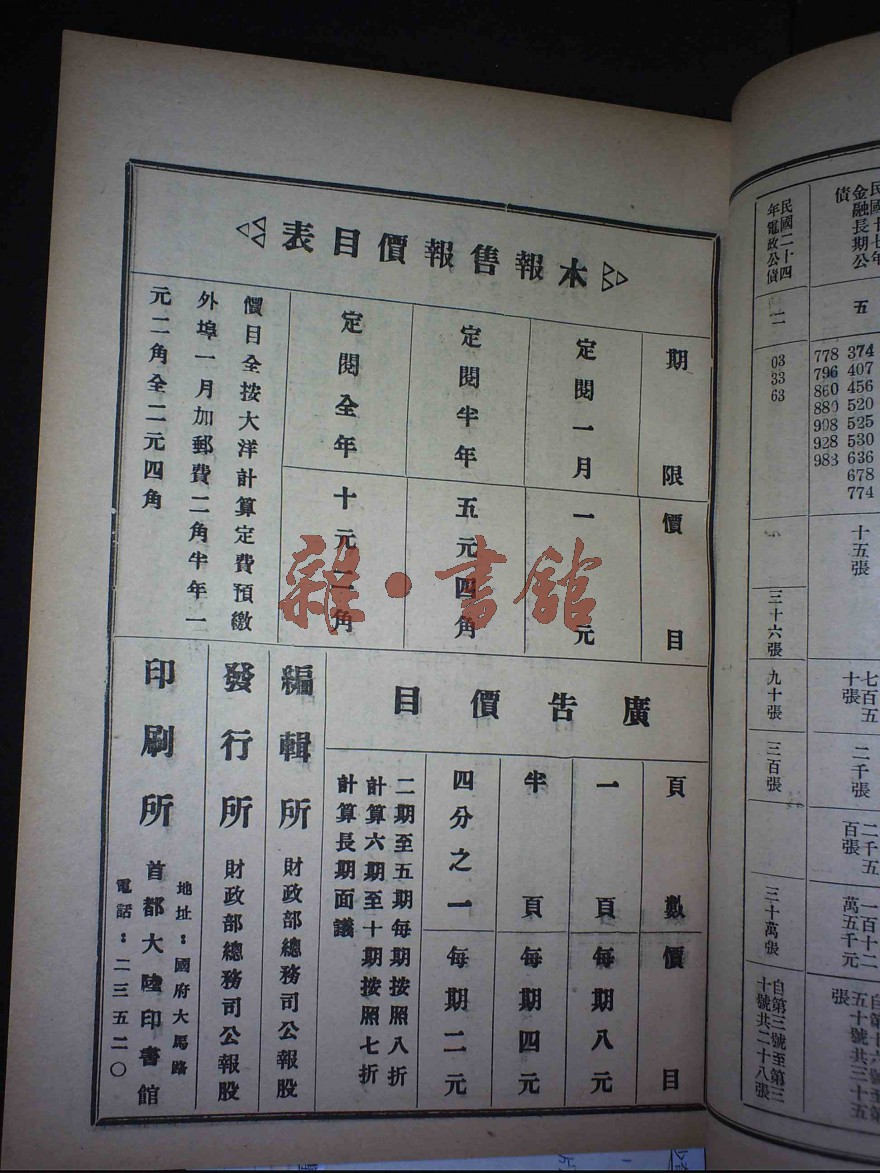 金融長期公
債
五
374
407
456
520
525
530
636
678
774
778
796
860
880
908
928
983
十五張
七百五
十張
二千張
二千五
百張
一百十二
萬五千元
五十號共三十五
張
民國二十四
年電政公債
二
03
33
63
三十六張
九十張
三百張
三十萬張
自第三號至第三
十號共二十八張
本報售報價目表
期限
價目
定閱一月
一元
定閱半年
五元四角
定閱全年
十元二角
價目全按大洋計算定費預繳
外埠一月加郵費二角半年一
元二角全二元四角
廣告價目
頁數
價目
一頁
每期八元
半頁
每期四元
四分之一
每期二元
二期至五期每期按照八折
計算六期至十期按照七折
計算長期面議
編輯所
財政部總務司公報股
發行所
財政部總務司公報股
印刷所
首都大陸印書館
地址：國府大馬路
電話：二三五二〇
雜·書館